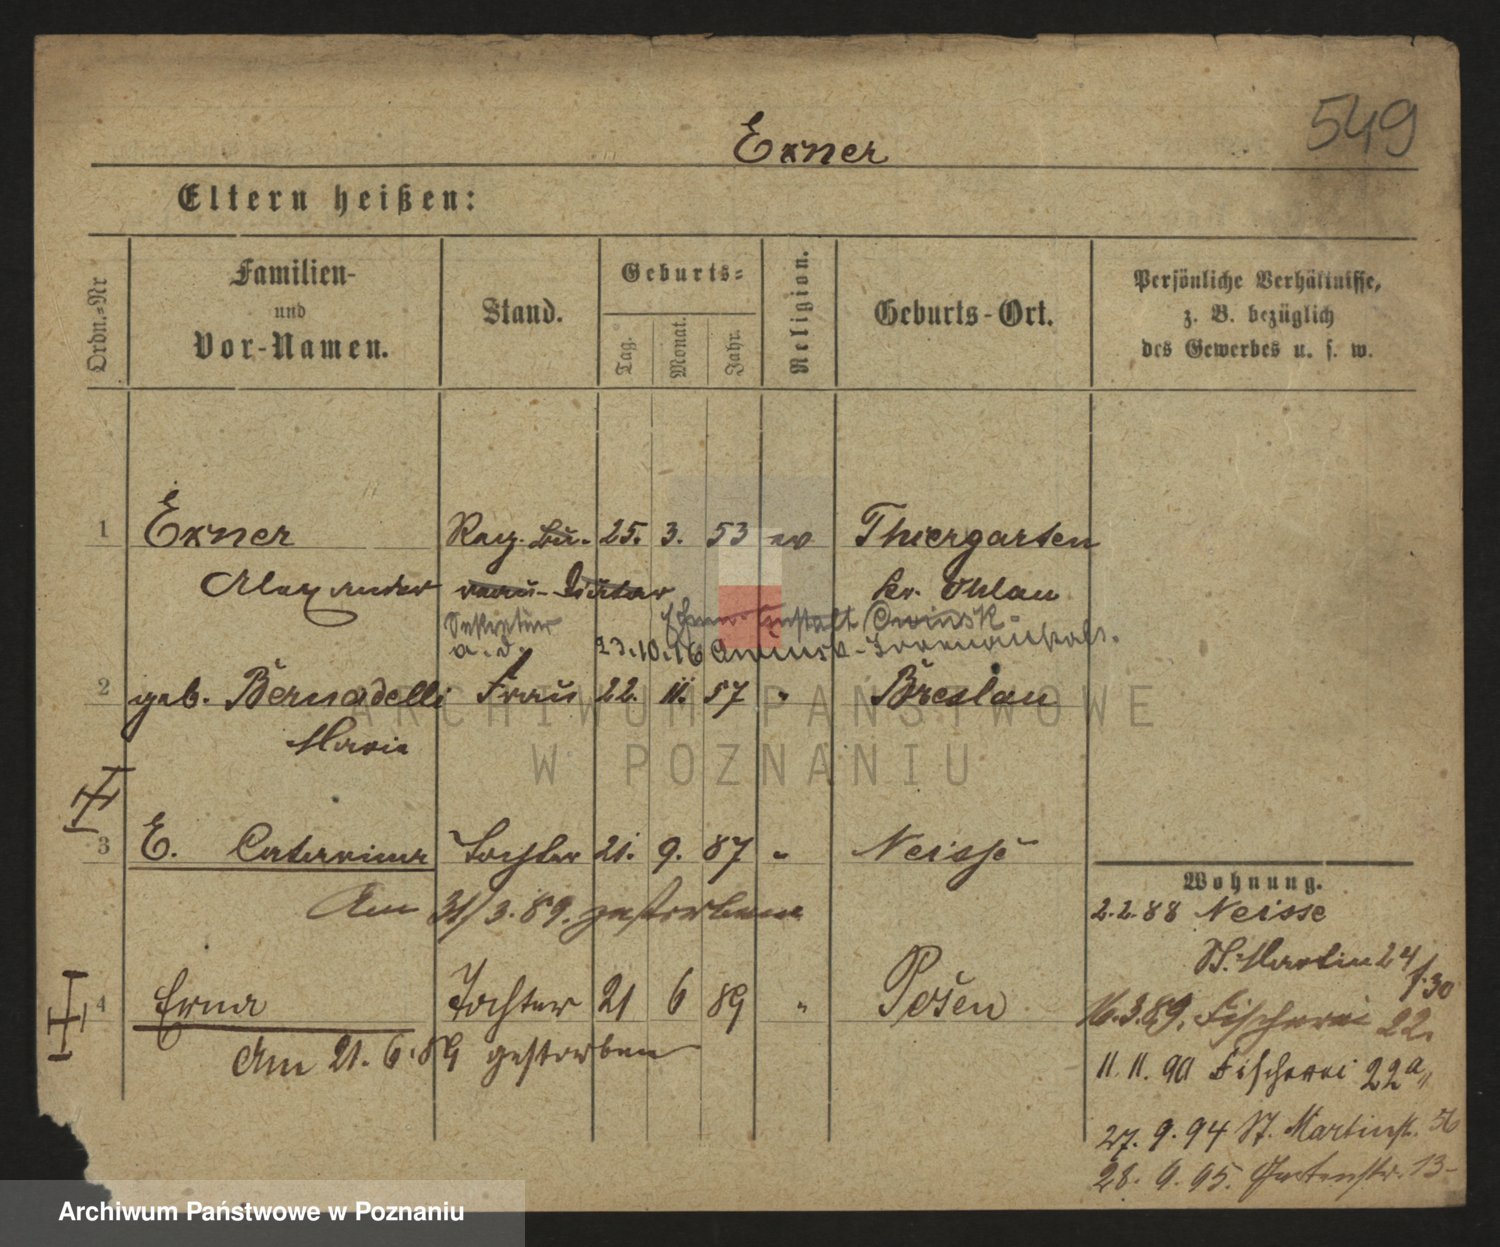 549
Exner
Eltern heißen:
Ordn.-Nr
Familien-
und
Vor-Namen.
Stand.
Geburts-
Tag.
Monat.
Jahr.
Religion.
Geburts-Ort.
Persönliche Verhältnisse,
z. B. bezüglich
des Gewerbes u. s. w.
1 Exner Reg. Bü- 25. 3. 53 ev Thiergarten
Alexander reau- Diätar Kr. Ohlau
Sekretär
a. D. 23.10.16 Owinsk-Irrenanstalt.
2 geb. Bernadelli Frau 22. 11. 57 " Breslau
Marie
3 E. Catarina Tochter 21. 9. 87 " Neisse
Am 31/3. 89. gestorben
4 Erna Tochter 21 6 89 " Posen
Am 21. 6. 89 gestorben
Wohnung.
2.2.88 Neisse
St. Martin 24
16.3.89. Fischerei 22.
11.11.90 Fischerei 22a
27.9.94 St. Martinstr. 56
28.9.95. Gartenstr. 13
ARCHIWUM PAŃSTWOWE
W POZNANIU
Archiwum Państwowe w Poznaniu